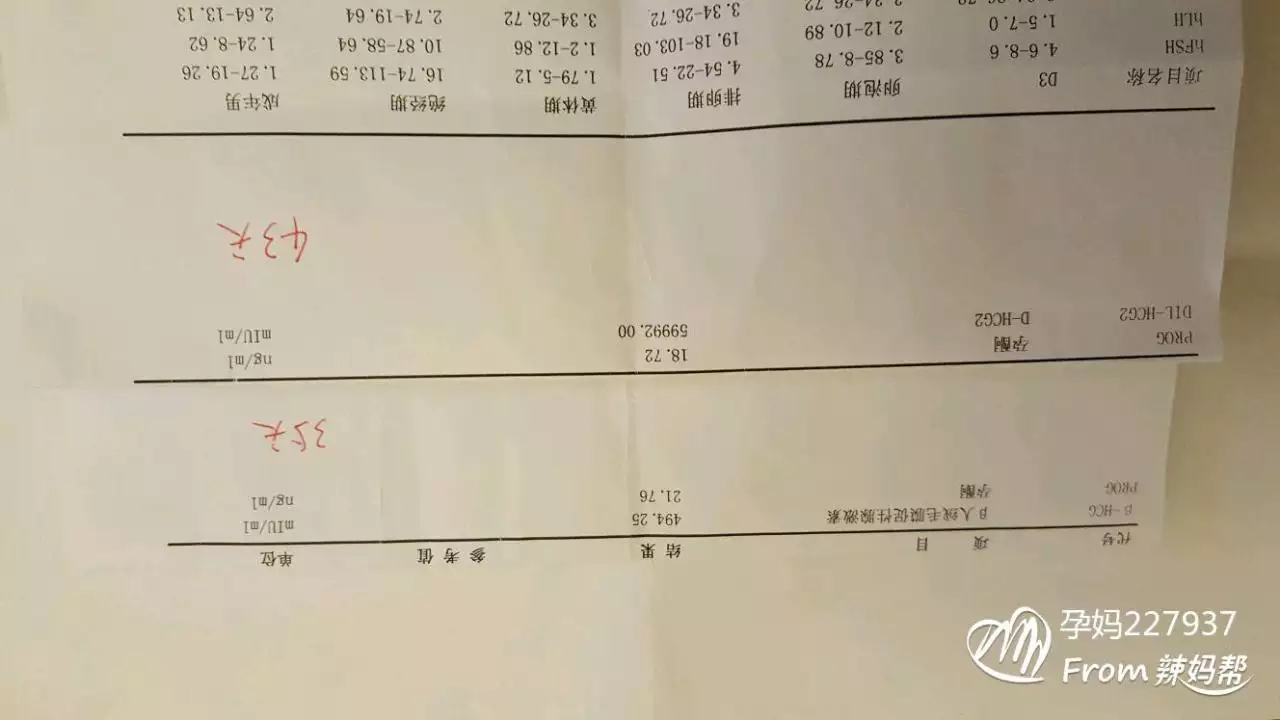 代号 项目 结果 参考值 单位
β-HCG β人绒毛膜促性腺激素 494.25 mIU/ml
PROG 孕酮 21.76 ng/ml
35天
PROG 孕酮 18.72 ng/ml
DIL-HCG2 D-HCG2 59992.00 mIU/ml
43天
项目名称 D3 卵泡期 排卵期 黄体期 绝经期 成年男
hFSH 4.6-8.6 3.85-8.78 4.54-22.51 1.79-5.12 16.74-113.59 1.27-19.26
hLH 1.5-7.0 2.12-10.89 19.18-103.03 1.2-12.86 10.87-58.64 1.24-8.62
3.34-26.72 3.34-26.72 2.74-19.64 2.64-13.13
孕妈227937
From 辣妈帮